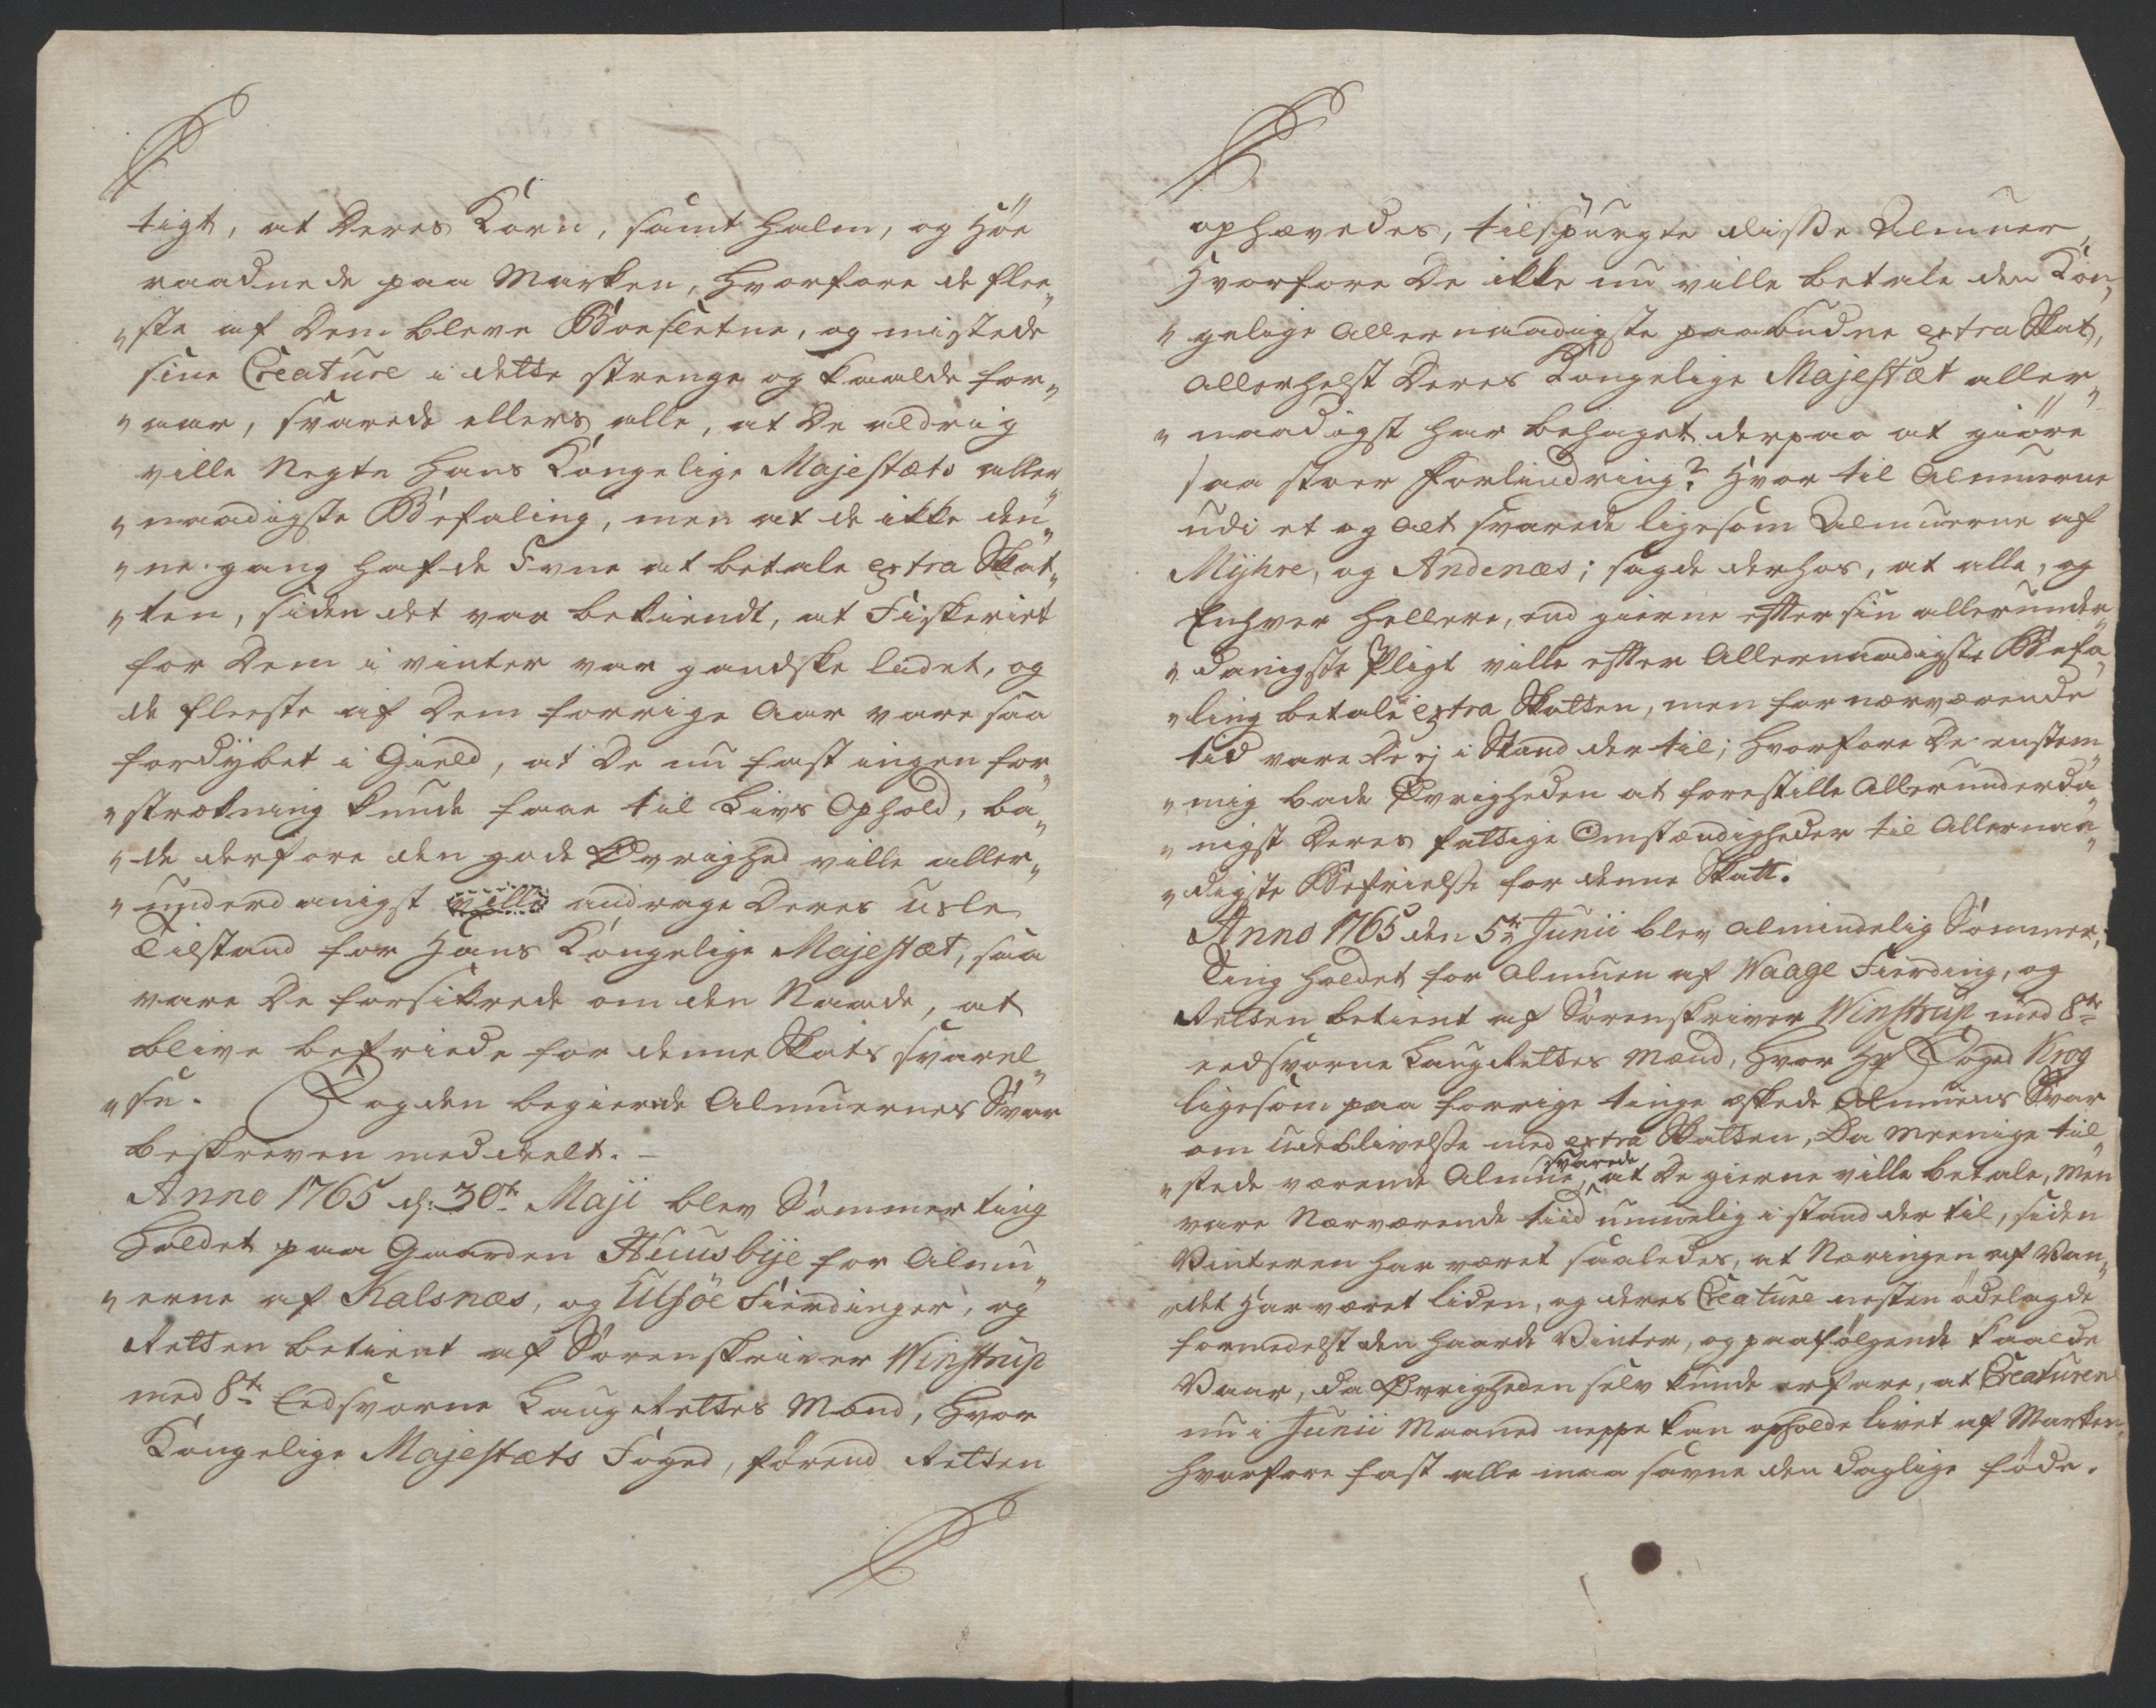 tigt, at Deres Korn, samt Halm, og Höe
raadnede paa Marken, hvorfore de flee„
„ste af Dem bleve Boesletne, og mistede
sine Creature i dette strenge og kaalde for„
„aar, svarede ellers alle, at De aldrig
ville Negte Hans Kongelige Majestæts aller„
„naadigste Befaling, men at de ikke den„
„ne gang hafde Evne at betale extra Skat„
„ten, siden det var bekiendt, at Fiskeriet
for Dem i vinter var gandske lidet, og
de fleeste af Dem forrige Aar vare saa
fordybet i Gield, at De nu fast ingen for„
„strækning kunde faae til Livs Ophold, ba„
„de derfore den gode Øvrighed ville aller„
„underdanigst ville andrage Deres usle
Tilstand for Hans Kongelige Majestæt, saa
vare De forsikrede om den Naade, at
blive befriede for denne Skats svarel„
„se. Fogden begierede Almuernes Svar
beskreven meddeelt. –
Anno 1765 d: 30te Maji blev Sommerting
Holdet paa Gaarden Huusbye for Almu„
„erne af Kalsnæs, og Ulsöe Fierdinger, og
Retten betient af Sorenskriver Winstrup
med 8te Eedsvorne Laug Rettes Mænd, hvor
Kongelige Majestæts Foged, förend Retten
ophævedes, tilspurgte disse Almuer,
Hvorfore De ikke nu ville betale den Kon„
„gelige Allernaadigste paabudne extra Skat,
Allerhelst Deres Kongelige Majestæt aller„
„naadigst har behaget derpaa at giöre
saa stoer Forlindring? Hvor til Almuerne
udi et og Alt svarede ligesom Almuerne af
Myhre, og Andenæs; sagde derhos, at alle, og
Enhver hellere, end gierne efter sin allerunder„
„danigste Pligt ville efter Allernaadigste Befa„
„ling betale extra Skatten, men for nærværende
tid vare De ej i Stand der til; hvorfore De eenstem„
„mig bade Øvrigheden at forestille Allerunderda„
„nigst Deres fattige Omstændigheder til Allernaa„
„digste Befrielse for denne Skatt.
Anno 1765 den 5te Junii blev almindelig Sommer„
Ting holdet for Almuen af Waage Fierding, og
Retten betient af Sorenskriver Winstrup med 8te
eedsvorne Laug Rettes Mænd, hvor Hr Foged Krog
ligesom paa forrige tinge æskede Almuens Svar
om udeblivelse med extra Skatten, Da meenige til„
„stede værende Almue, svarede at De gierne ville betale, men
vare Nærværende tiid umuelig i stand der til, siden
Vinteren har været saaledes, at Næringen af Van„
„det har været liden, og deres Creature nesten ödelagde
formedelst den haarde Vinter, og paafølgende kaalde
Vaar, da Øvrigheden selv kunde erfare, at Creaturene
nu i Junii Maaned neppe kan opholde livet af Marken
hvorfore fast alle maa savne den daglige föde.